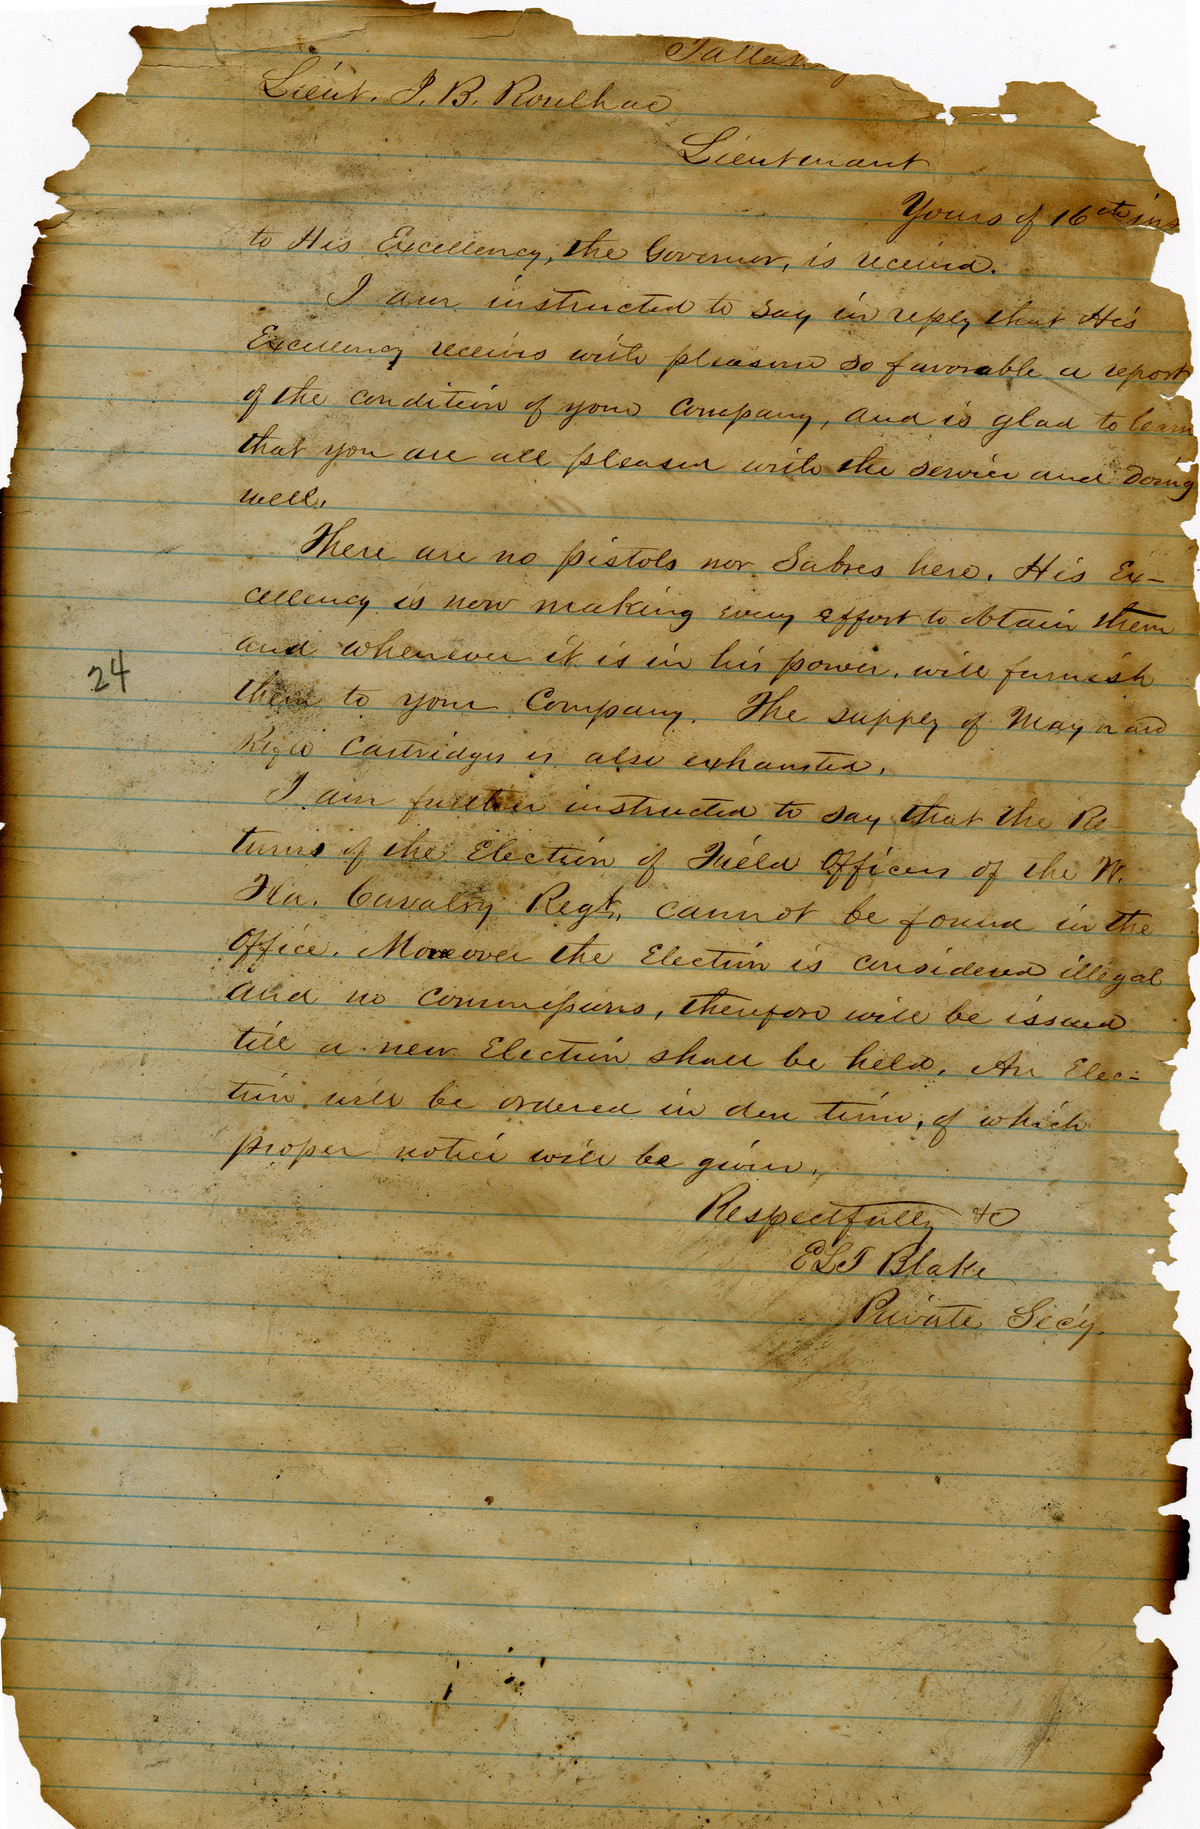 Tallah
Lieut. J. B. Roulhac
Lieutenant
Yours of 16th ins
to His Excellency, the Governor, is received.
I am instructed to say in reply that His
Excellency receives with pleasure so favorable a report
of the condition of your Company, and is glad to learn
that you are all pleased with the service and doing
well.
There are no pistols nor Sabres here. His Ex-
cellency is now making every effort to obtain them
and whenever it is in his power, will furnish
them to your Company. The supply of Maynard
Rifle Cartridges is also exhausted.
24
I am further instructed to say that the Re-
turns of the Election of Field Officers of the W.
Fla. Cavalry Regt. cannot be found in the
Office. Moreover the Election is considered illegal
and no commissions, therefore will be issued
till a new Election shall be held. An Elec-
tion will be ordered in due time, of which
proper notice will be given.
Respectfully &c
ELT Blake
Private Secy.